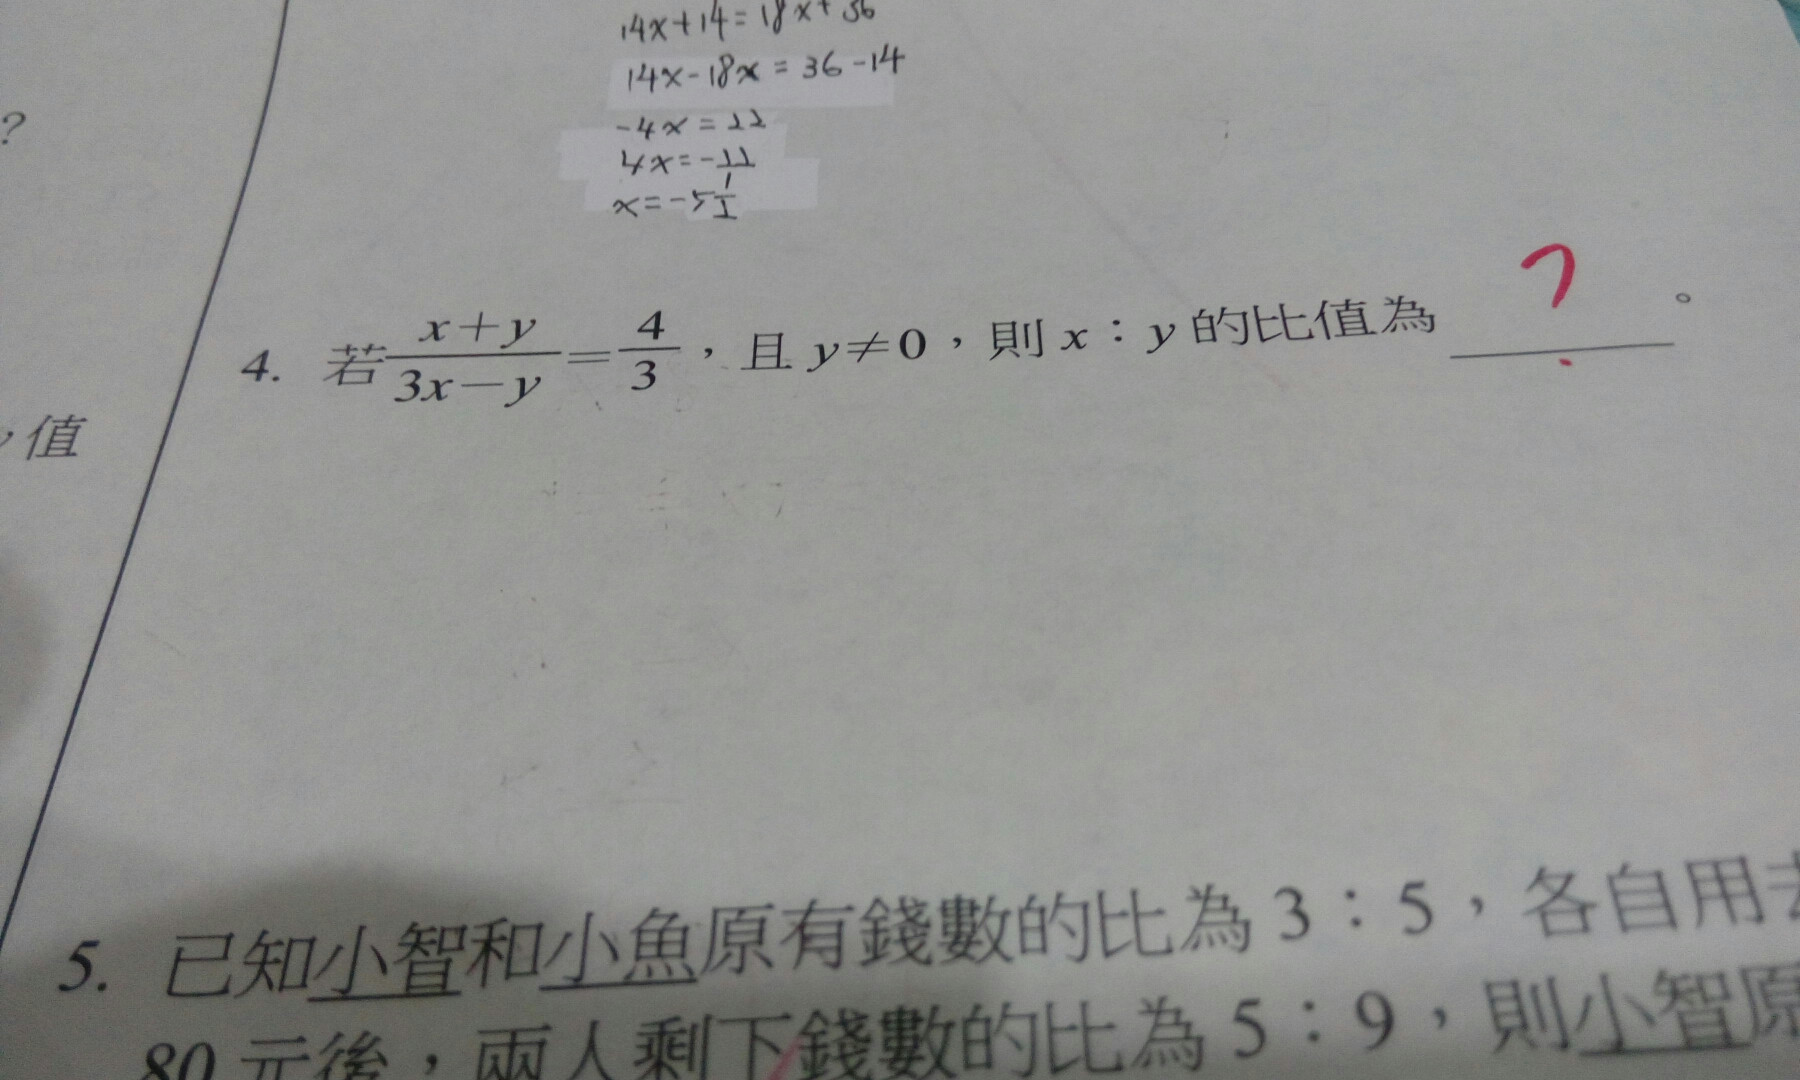 14x+14=18x+36
14x-18x=36-14
-4x=22
4x=-22
?
4. 若 (x+y)/(3x-y) = 4/3，且 y≠0，則 x：y 的比值為 ？。
，值
5. 已知小智和小魚原有錢數的比為 3：5，各自用去
80 元後，兩人剩下錢數的比為 5：9，則小智原